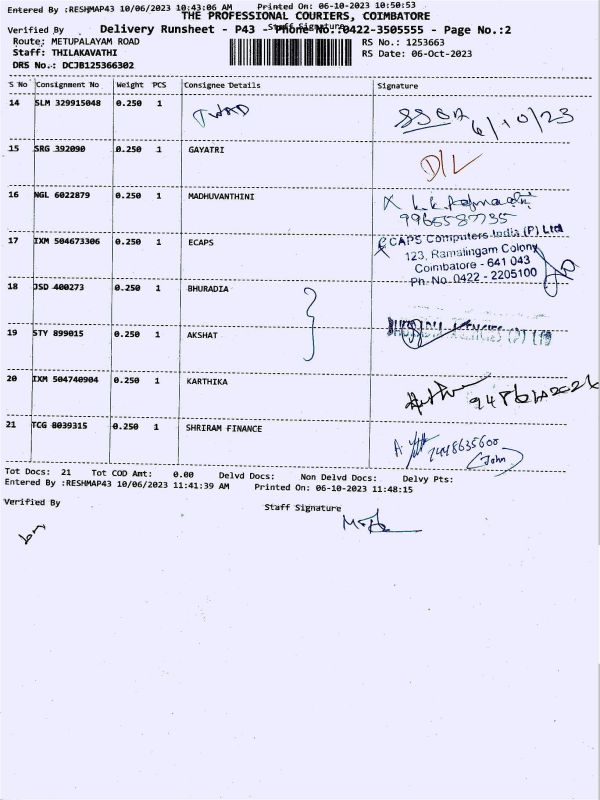 Entered By :RESHMAP43 10/06/2023 10:43:06 AM Printed On: 06-10-2023 10:50:53
THE PROFESSIONAL COURIERS, COIMBATORE
Verified By Staff Signature
Delivery Runsheet - P43 - Phone No.:0422-3505555 - Page No.:2
Route: METUPALAYAM ROAD RS No.: 1253663
Staff: THILAKAVATHI RS Date: 06-Oct-2023
DRS No.: DCJB125366302
S No Consignment No Weight PCS Consignee Details Signature
14 SLM 329915048 0.250 1 6/10/23
15 SRG 392090 0.250 1 GAYATRI D/L
16 NGL 6022879 0.250 1 MADHUVANTHINI
9965587735
17 IXM 504673306 0.250 1 ECAPS
ECAPS Computers India (P) Ltd
123, Ramalingam Colony
Coimbatore - 641 043
Ph- No. 0422 - 2205100
18 JSD 400273 0.250 1 BHURADIA
19 STY 899015 0.250 1 AKSHAT
20 IXM 504740904 0.250 1 KARTHIKA
21 TCG 8039315 0.250 1 SHRIRAM FINANCE
7448635600
John
Tot Docs: 21 Tot COD Amt: 0.00 Delvd Docs: Non Delvd Docs: Delvy Pts:
Entered By :RESHMAP43 10/06/2023 11:41:39 AM Printed On: 06-10-2023 11:48:15
Verified By Staff Signature